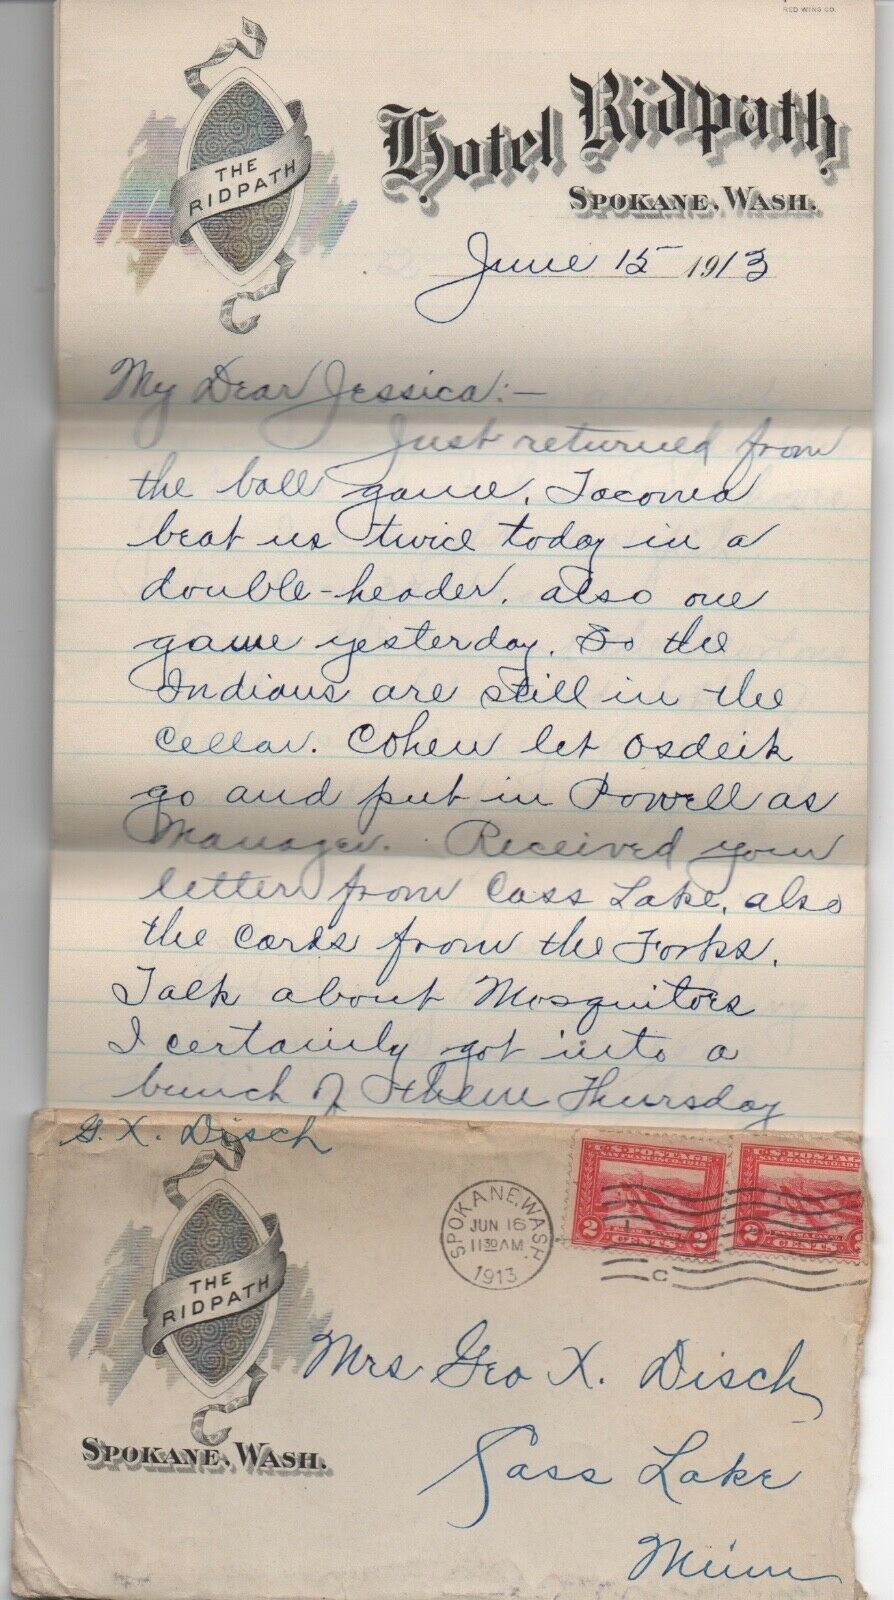 RED WING CO.
THE
RIDPATH
Hotel Ridpath
SPOKANE, WASH.
June 15 1913
My Dear Jessica:-
Just returned from
the ball game. Tacoma
beat us twice today in a
double-header, also one
game yesterday. So the
Indians are still in the
Cellar. Cohen let Osdeik
go and put in Powell as
Manager. Received your
letter from Cass Lake, also
the cards from the Forks.
Talk about Mosquitoes
I certainly got into a
bunch of them Thursday
G. X. Disch
THE
RIDPATH
SPOKANE, WASH.
SPOKANE, WASH.
JUN 16
11 30 AM
1913
U.S. POSTAGE
SAN FRANCISCO, 1915
2 CENTS 2
U.S. POSTAGE
SAN FRANCISCO, 191
2 CENTS
C
Mrs Geo X. Disch
Cass Lake
Minn